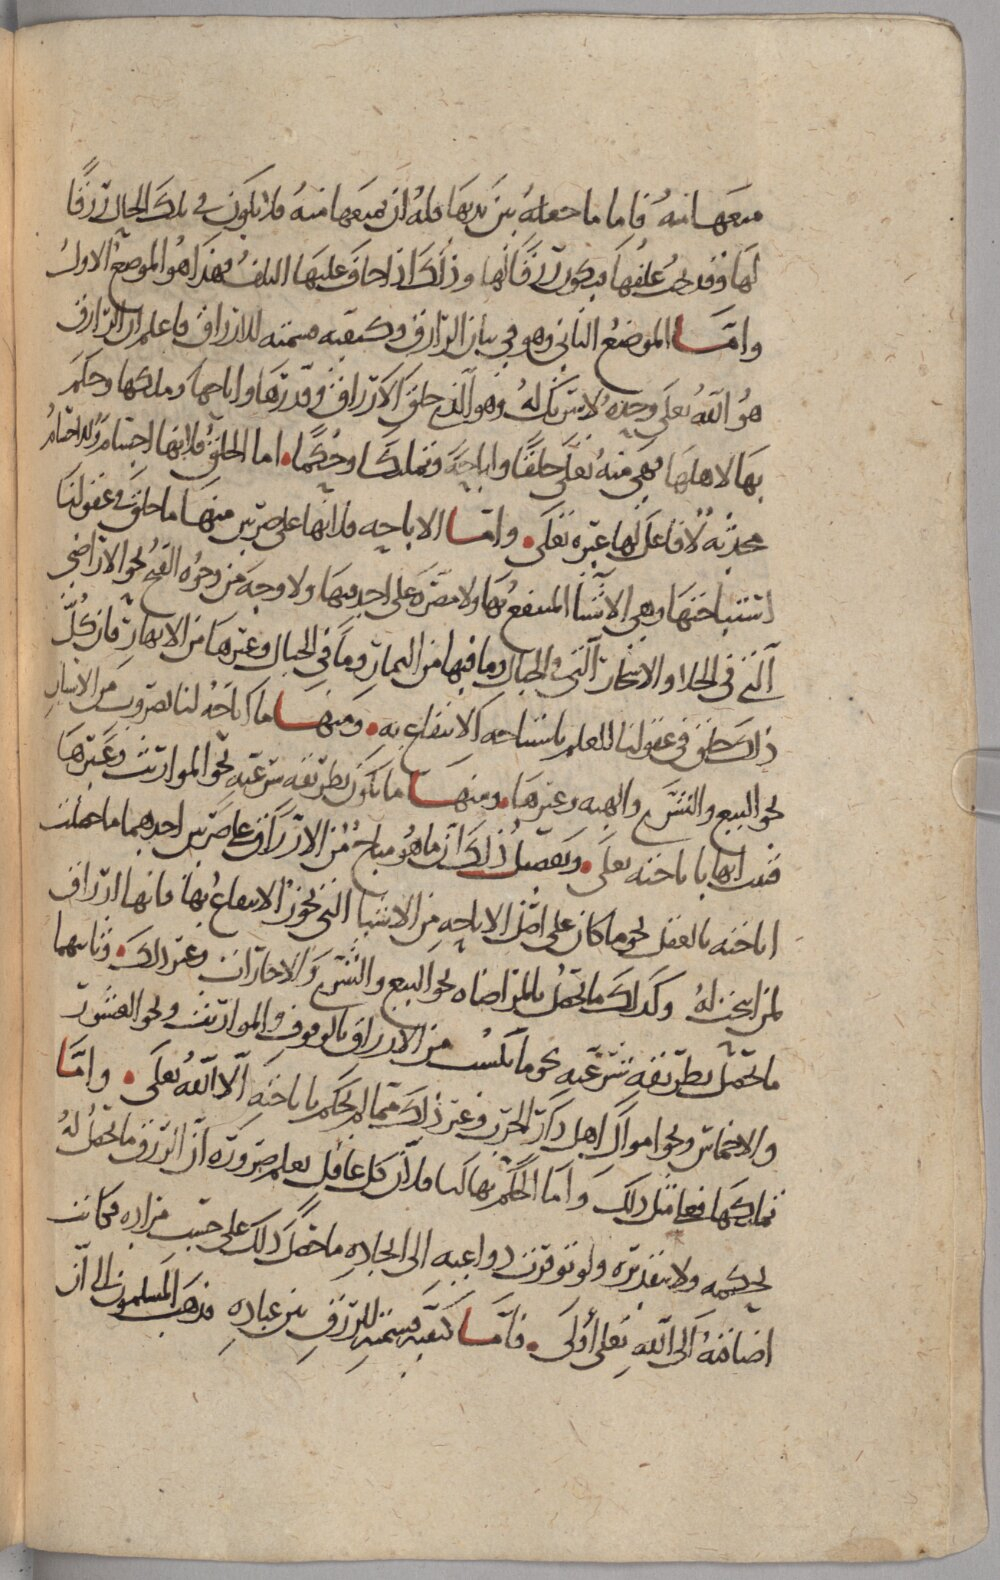 منعها منه فاما ما جعله بين يديها فله ان يمنعها منه فلا يكون في تلك الحال رزقا
لها وقد يجب علفها فيكون رزقا لها وذلك اذا خاف عليها التلف فهذا هو الموضع الاول
واما الموضع الثاني وهو في بيان الرازق وكيفية قسمته للارزاق فاعلم ان الرازق
هو الله تعلى وحده لا شريك له وهو الذي خلق الارزاق وقدرها واباحها وملكها وحكم
بها لاهلها فهي منه تعلى خلقا واباحة وتمليكا وحكما اما الخلق فلانها اجسام والاجسام
محدثة لا فاعل لها غيره تعلى واما الاباحه فلانها على ضربين منها ما خلق في عقولنا
استباحتها وهي الاشيا المنتفع بها ولا مضرة على احد فيها ولا وجه من وجوه القبح نحو الاراضي
التي في الخلاء والاشجار التي في الجبال وما فيها من الثمار وما في الجبال وغيرها من الانهار فان كل
ذلك خلق في عقولنا العلم باستباحه الانتفاع به ومنها ما اباحه لنا بضروب من الاسباب
نحو البيع والشرى والهبه وغيرها ومنها ما يكون بطريقه شرعيه نحو المواريث وغيرها
فثبت انها باباحته تعلى وتفصيل ذلك ان ما هو مباح من الارزاق على ضربين احدهما ما حصلت
اباحته بالعقل نحو ما كان على اصل الاباحه من الاشيا التي يجوز الانتفاع بها فانها ارزاق
لمن ابيحت له وكذلك ما تحصل بالمراضاه نحو البيع والشرى والاجارات وغير ذلك وثانيهما
ما تحصل بطريقة شرعيه نحو ما يكسب من الارزاق بالوقوف والمواريث ونحو العشور
والاخماس ونحو اموال اهل دار الحرب وغير ذلك مما لم يحكم باباحته الا الله تعلى واما
تمليكها فعلى مثل ذلك واما الحكم بها لنا فلان كل عاقل يعلم ضرورة ان الرزق ما تحصل له
بحكمه ولا بتقديره ولو توفرت دواعيه الى ايجاده ما حصل ذلك على حسب مراده فكانت
اضافته الى الله تعلى أولى فاما كيفية قسمته للرزق بين عباده فذهب المسلمون الى ان